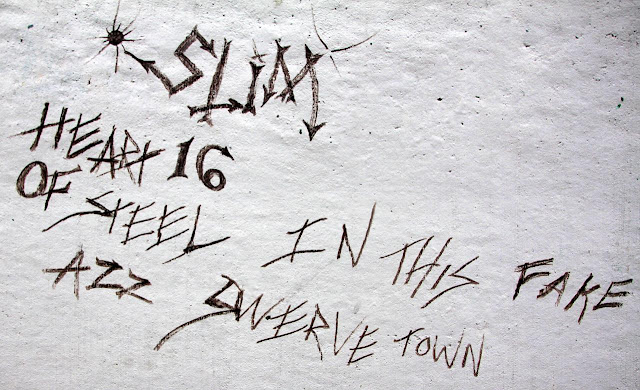 SLIM
HEART 16
OF STEEL IN THIS FAKE
AZZ SWERVE TOWN